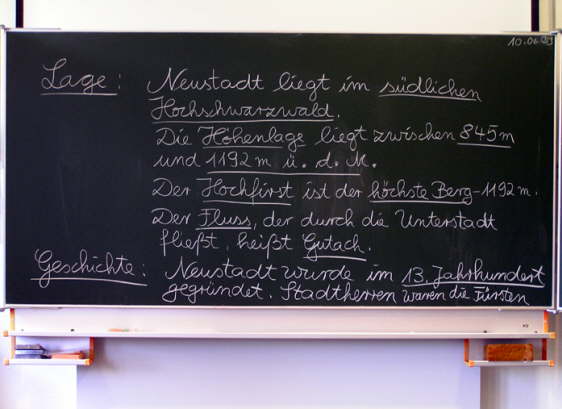 10.06.
Lage: Neustadt liegt im südlichen
Hochschwarzwald.
Die Höhenlage liegt zwischen 845m
und 1192m ü. d. M.
Der Hochfirst ist der höchste Berg-1192m.
Der Fluss, der durch die Unterstadt
fließt, heißt Gutach.
Geschichte: Neustadt wurde im 13. Jahrhundert
gegründet. Stadtherren waren die Fürsten